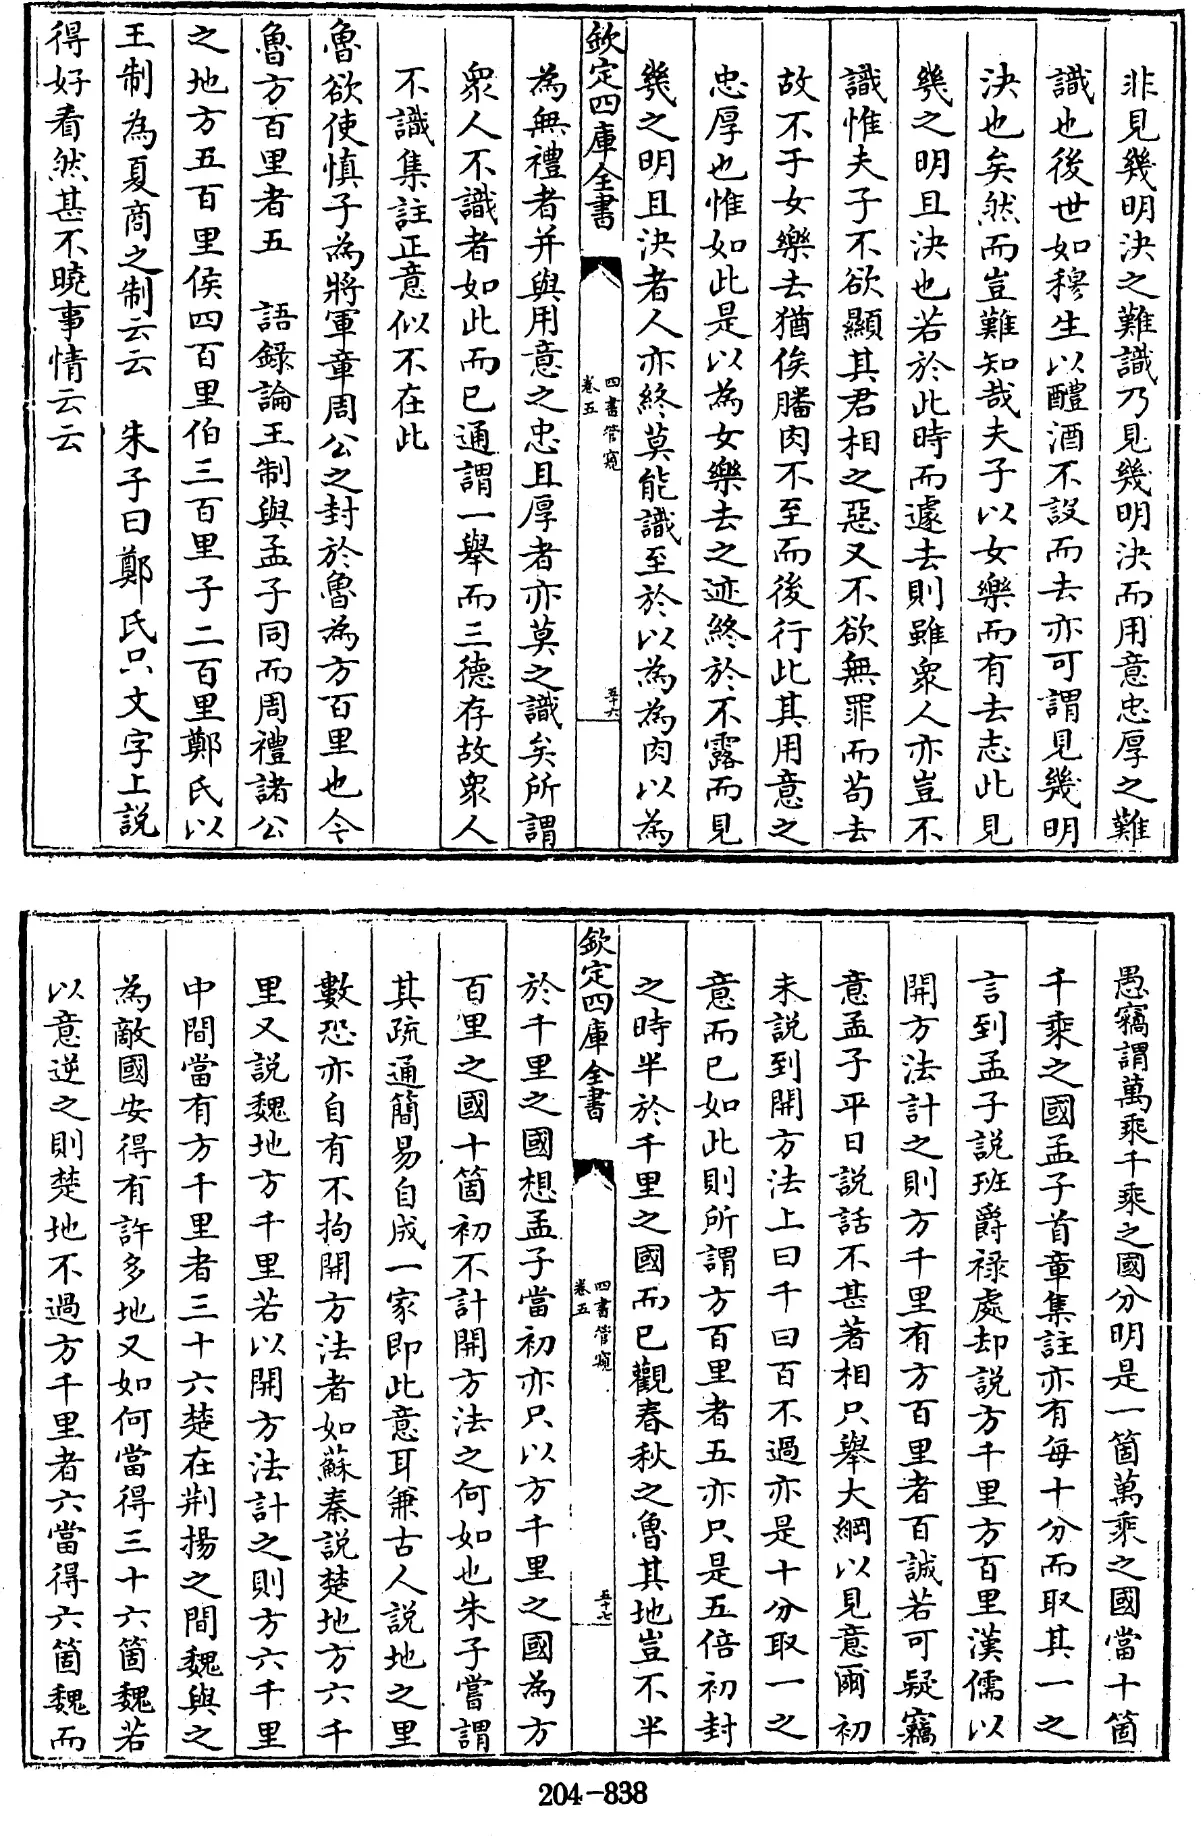 非見幾明決之難識乃見幾明決而用意忠厚之難
識也後世如穆生以醴酒不設而去亦可謂見幾明
決也矣然而豈難知哉夫子以女樂而有去志此見
幾之明且決也若於此時而遽去則雖衆人亦豈不
識惟夫子不欲顯其君相之惡又不欲無罪而苟去
故不于女樂去猶俟膰肉不至而後行此其用意之
忠厚也惟如此是以為女樂去之迹終於不露而見
幾之明且決者人亦終莫能識至於以為為肉以為
欽定四庫全書
四書管窺
卷五
五十六
為無禮者并與用意之忠且厚者亦莫之識矣所謂
衆人不識者如此而已通謂一舉而三德存故衆人
不識集註正意似不在此
魯欲使慎子為將軍章周公之封於魯為方百里也今
魯方百里者五　語錄論王制與孟子同而周禮諸公
之地方五百里侯四百里伯三百里子二百里鄭氏以
王制為夏商之制云云　朱子曰鄭氏只文字上説
得好看然甚不曉事情云云
愚竊謂萬乘千乘之國分明是一箇萬乘之國當十箇
千乘之國孟子首章集註亦有每十分而取其一之
言到孟子説班爵祿處却説方千里方百里漢儒以
開方法計之則方千里有方百里者百誠若可疑竊
意孟子平日説話不甚著相只舉大綱以見意爾初
未説到開方法上曰千曰百不過亦是十分取一之
意而已如此則所謂方百里者五亦只是五倍初封
之時半於千里之國而已觀春秋之魯其地豈不半
欽定四庫全書
四書管窺
卷五
五十七
於千里之國想孟子當初亦只以方千里之國為方
百里之國十箇初不計開方法之何如也朱子嘗謂
其疏通簡易自成一家即此意耳兼古人説地之里
數恐亦自有不拘開方法者如蘇秦説楚地方六千
里又説魏地方千里若以開方法計之則方六千里
中間當有方千里者三十六楚在荆揚之間魏與之
為敵國安得有許多地又如何當得三十六箇魏若
以意逆之則楚地不過方千里者六當得六箇魏而
204-838